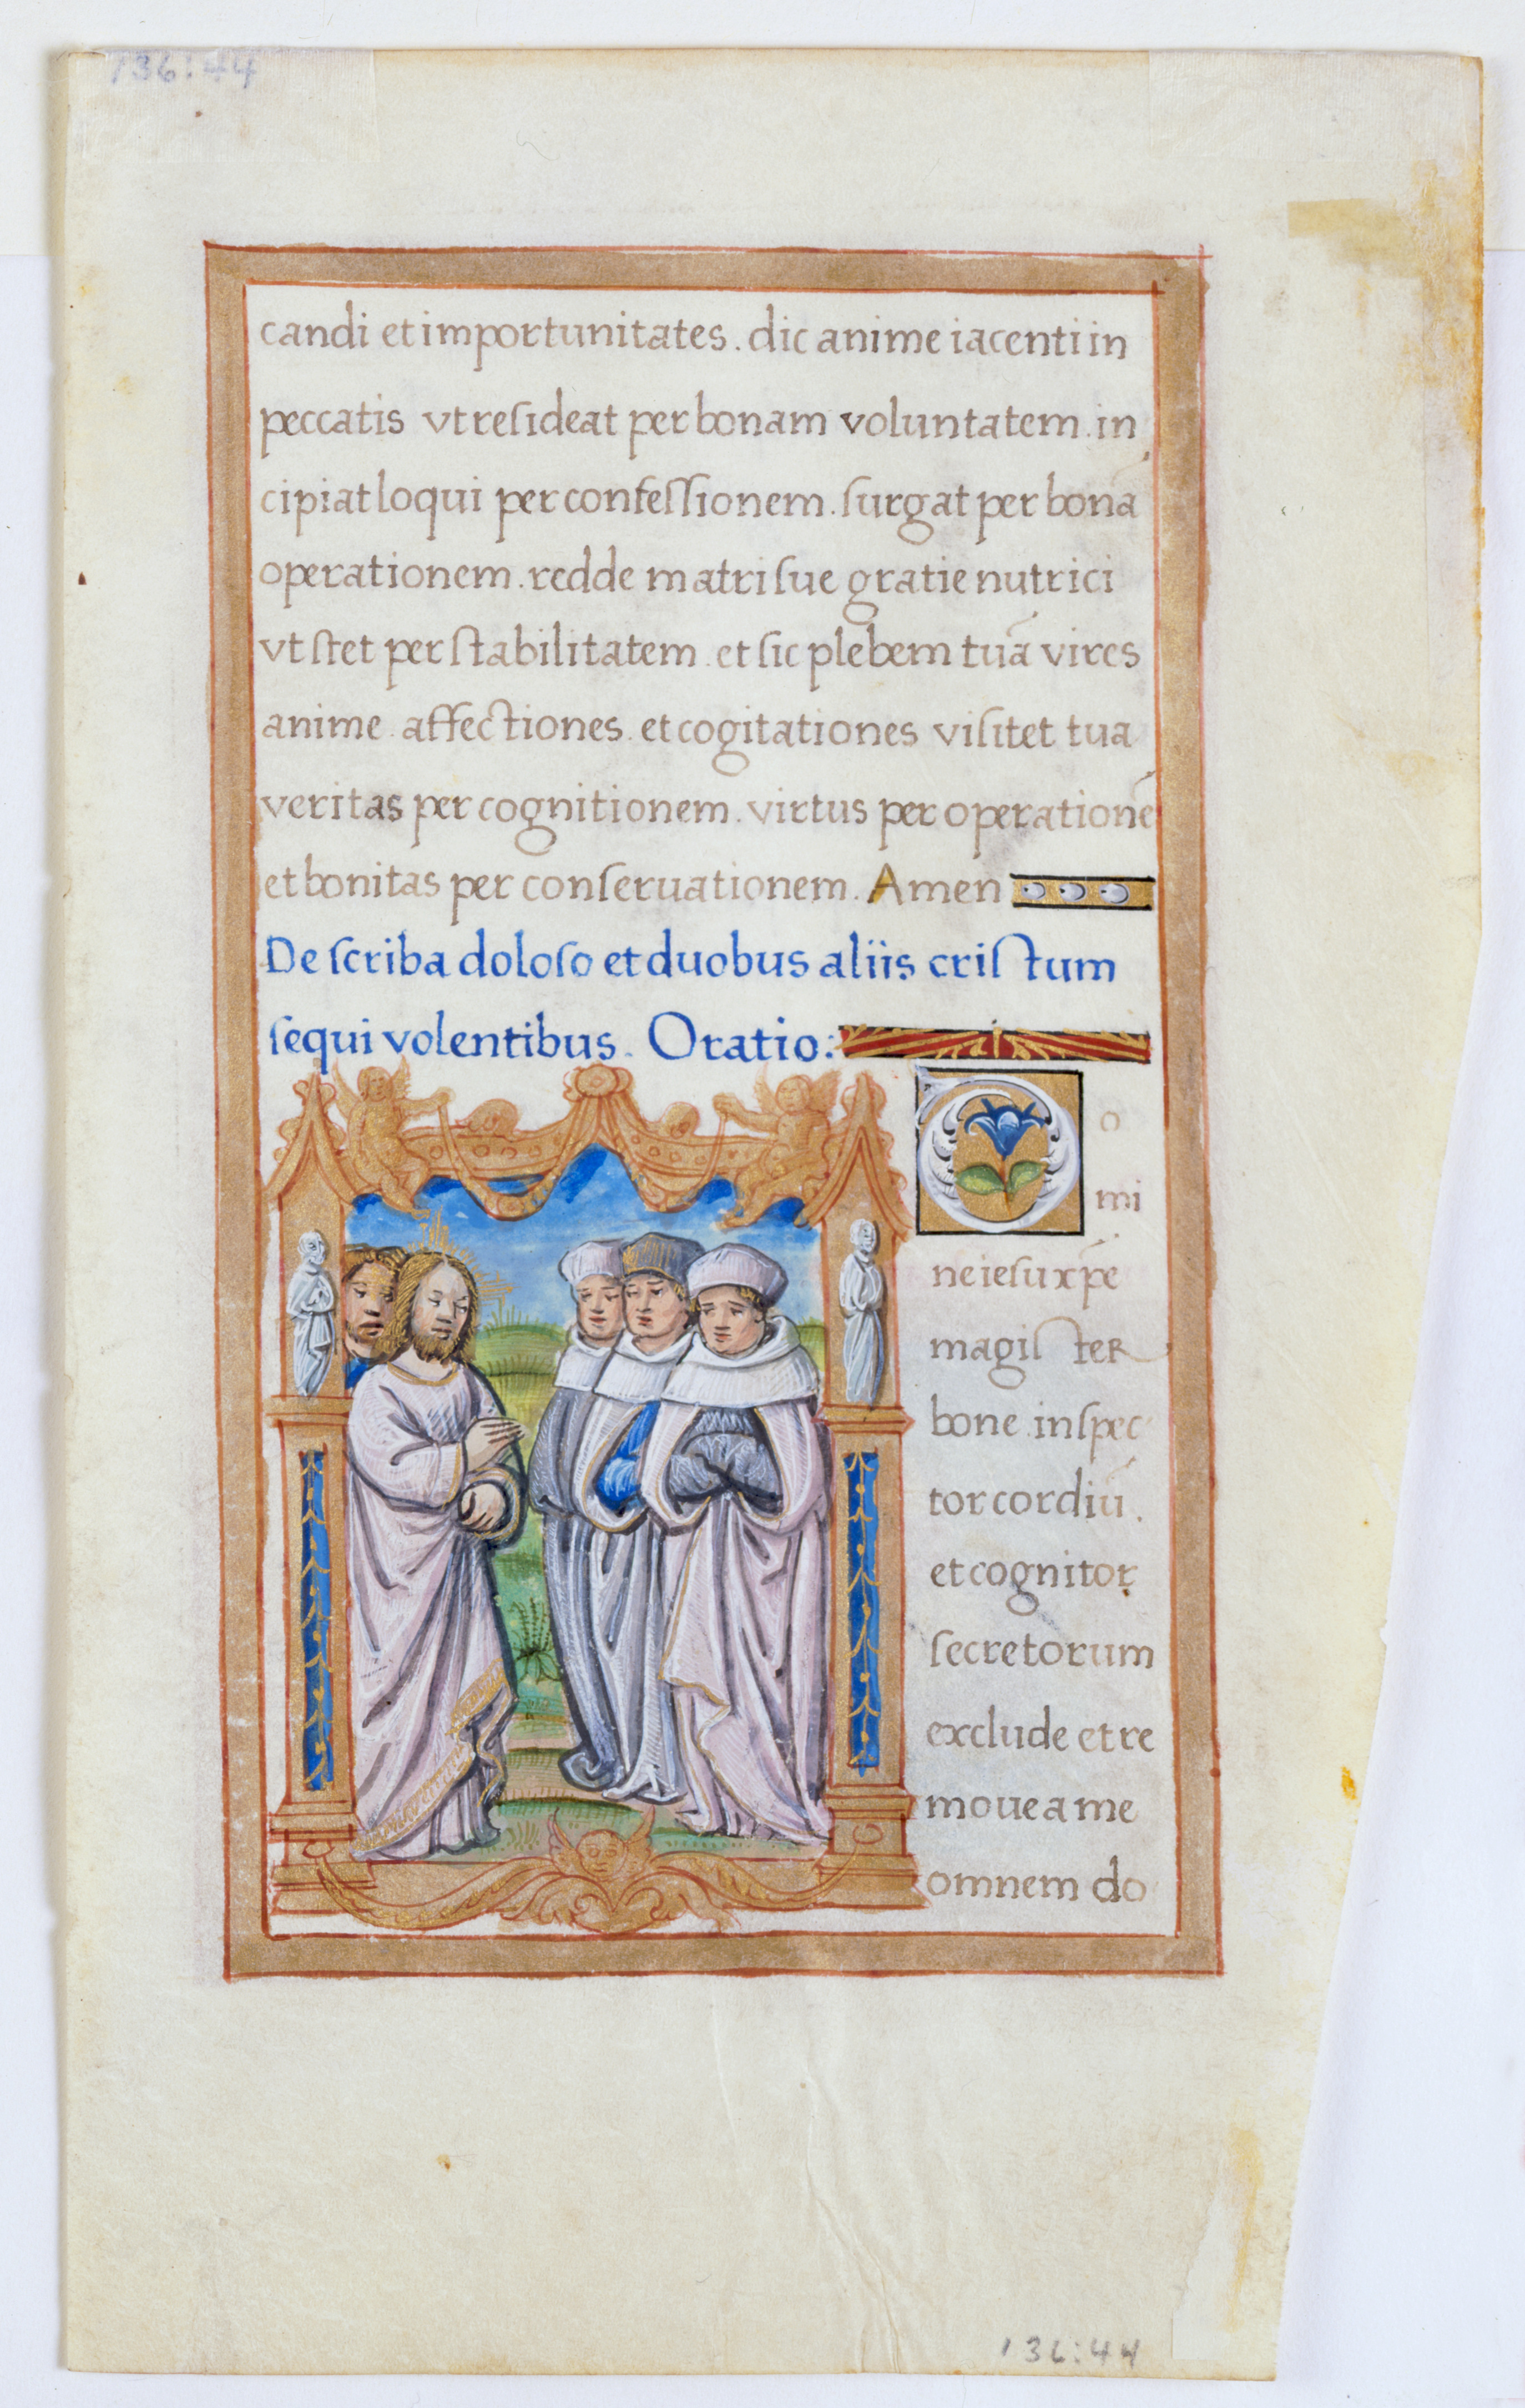 136:44
candi et importunitates. dic anime iacenti in
peccatis vt reſideat per bonam voluntatem. in
cipiat loqui per confeſſionem. ſurgat per bonā
operationem. redde matri ſue gratie nutrici
vt ſtet per ſtabilitatem. et ſic plebem tuā vires
anime. affectiones. et cogitationes viſitet tua
veritas per cognitionem. virtus per operationē
et bonitas per conſeruationem. Amen
De ſcriba doloſo et duobus aliis criſtum
ſequi volentibus. Oratio:
Do
mi
ne ieſu xp̄e
magiſter
bone. inſpec
tor cordiū.
et cognitor
ſecretorum
exclude et re
moue a me
omnem do
136:44